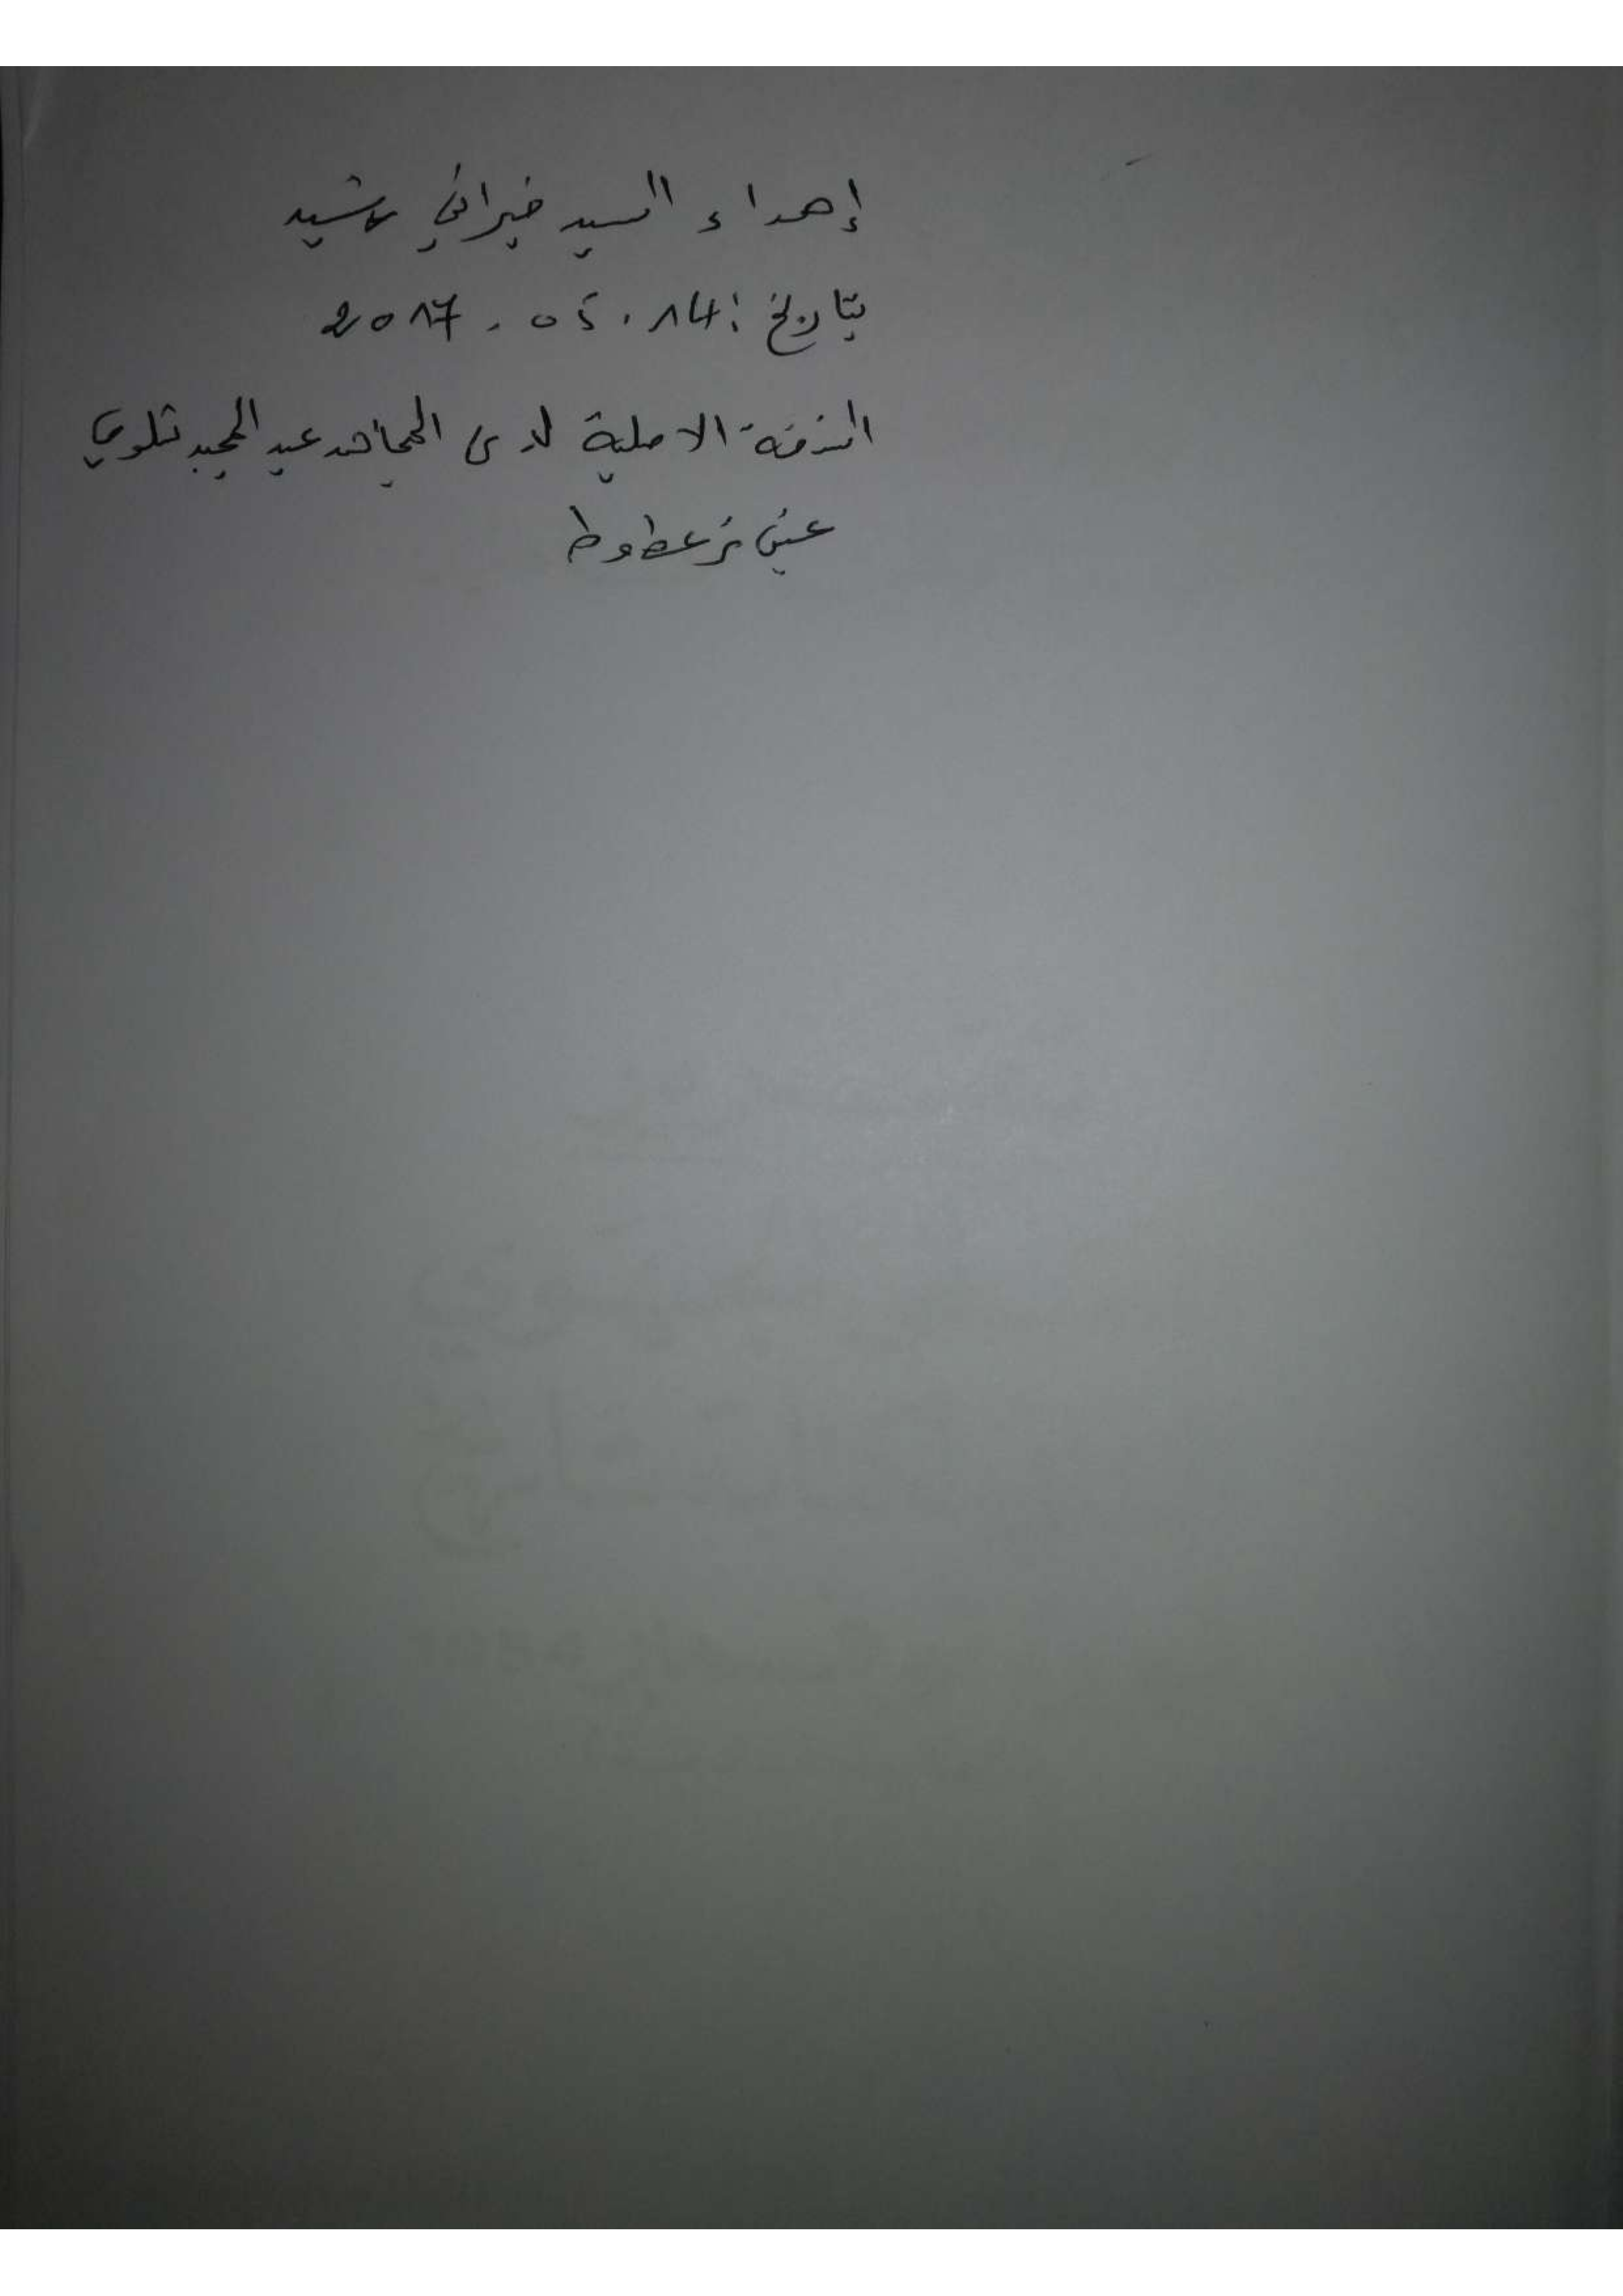 إهداء السيد خيراني رشيد
بتاريخ: 14. 05. 2017
النسخة الاصلية لدى المجاهد عبد المجيد تلوي
عين زعطوط